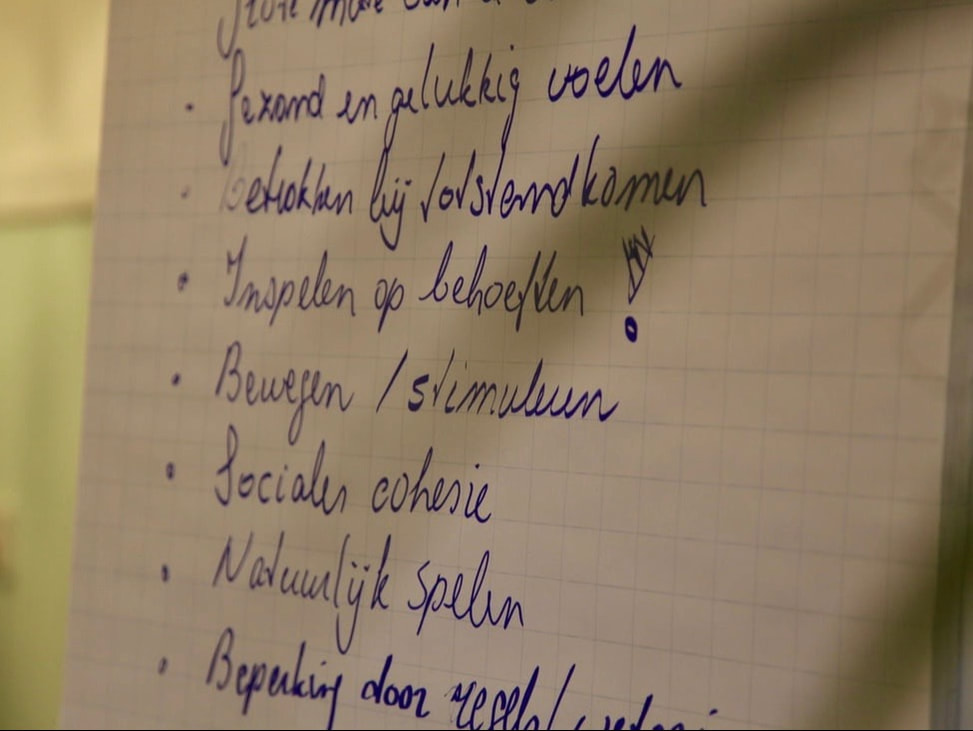 · Gezond en gelukkig voelen
· Betrokken bij totstandkomen
· Inspelen op behoeften !
· Bewegen / stimuleren
· Sociale cohesie
· Natuurlijk spelen
· Beperking door regels/